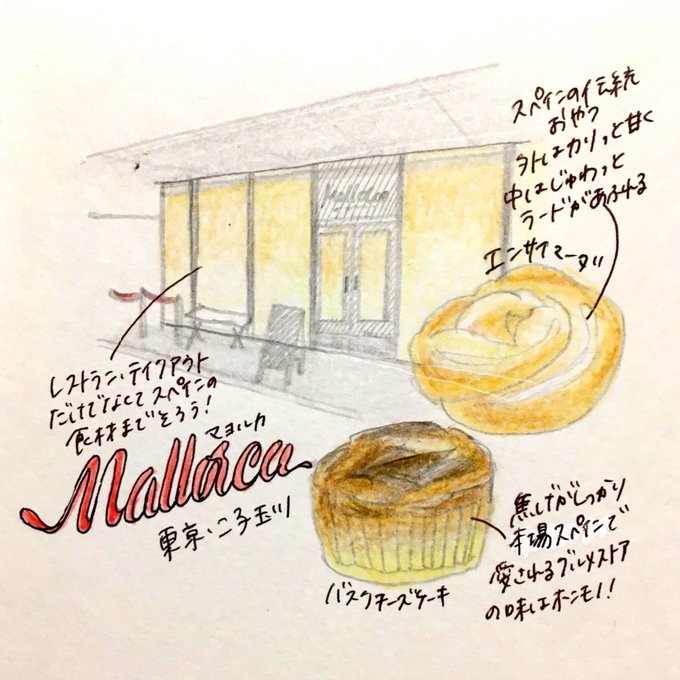 スペインの伝統
おやつ
外はカリッと甘く
中はじゅわっと
ラードがあふれる
エンサイマーダ
Mallorca
レストラン・テイクアウト
だけでなくてスペインの
食材までそろう!
マヨルカ
Mallorca
東京・二子玉川
バスクチーズケーキ
焦げがしっかり
本場スペインで
愛されるグルメストア
の味はホンモノ!